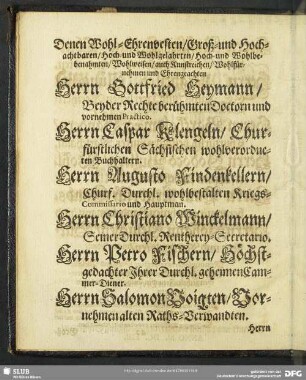 Denen Wohl-Ehrenvesten/Groß-und Hoch-
achtbaren/Hoch-und Wohlgelahrten/Hoch-und Wohlbe-
benahmten/Wohlweisen/auch Kunstreichen/Wohlfür-
nehmen und Ehrengeachten
Herrn Gottfried Heymann/
Beyder Rechte berühmten Doctorn und
vornehmen Practico.
Herrn Caspar Klengeln/Chur-
fürstlichen Sächsischen wohlverordne-
ten Buchhaltern.
Herrn Augusto Findenkellern/
Churf. Durchl. wohlbestalten Kriegs-
Commissario und Hauptman.
Herrn Christiano Winckelmann/
Seiner Durchl. Rentherey-Secretario.
Herrn Petro Fischern/Höchst-
gedachter Ihrer Durchl. geheimen Cam-
mer-Diener.
Herrn Salomon Voigten/Vor-
nehmen alten Raths-Verwandten.
Herrn
SLUB
DFG